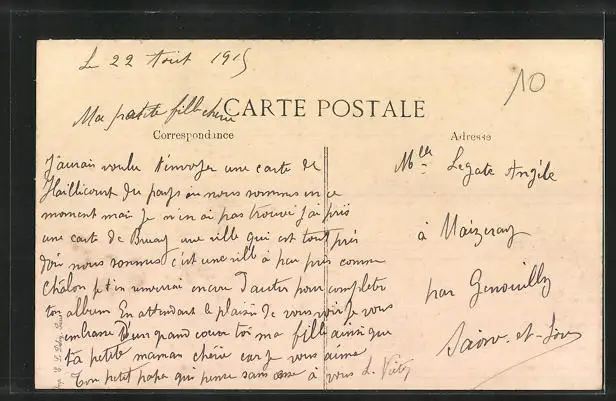 Le 22 Aout 1915
10
Ma petite fille cherie
CARTE POSTALE
Correspondance
Adresse
J'aurais voulu t'envoyer une carte de
Haillicourt du pays ou nous sommes en ce
moment mais je n'en ai pas trouvé j'ai pris
une carte de Bruay une ville qui est tout près
d'où nous sommes c'est une ville à peu près comme
Châlon je t'en enverrai encore d'autres pour completer
ton album En attendant le plaisir de vous voir je vous
embrasse d'un grand coeur toi ma fille ainsi que
ta petite maman chérie car je vous aime
Ton petit papa qui pense sans cesse à vous L.
Mlle Legate Angèle
à Maizeray
par Genouilly
Saone-et-Loire